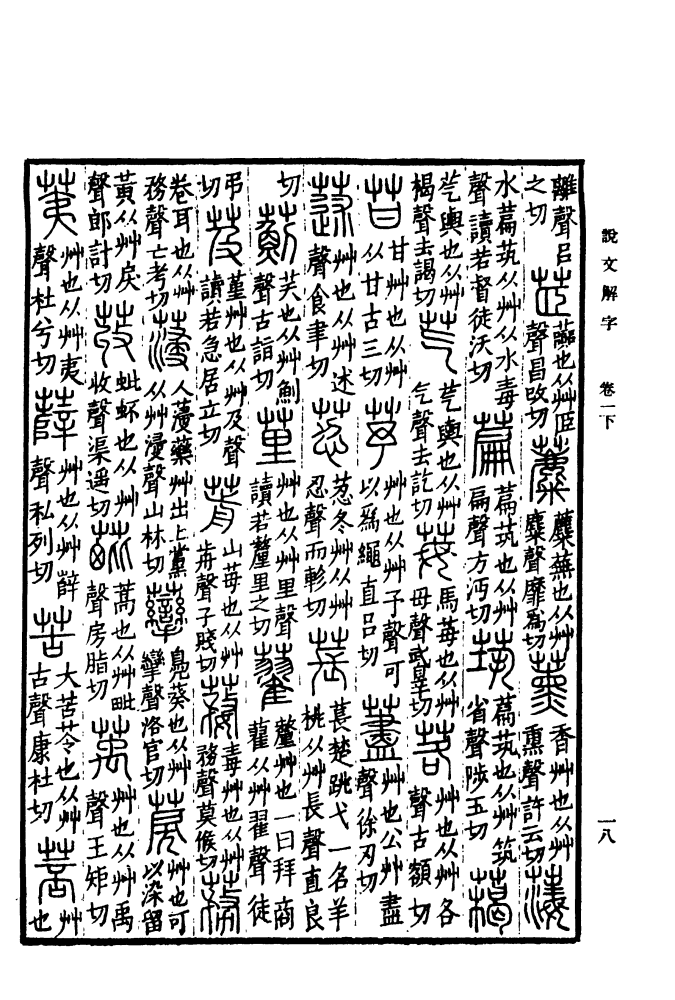 說文解字 卷一下
一八
離聲呂之切 茝 䖀也从艸𦣞聲昌改切 蘪 蘪蕪也从艸麋聲靡爲切 薰 香艸也从艸熏聲許云切 𦺇
水萹茿从艸从水毒聲讀若督徒沃切 萹 萹茿也从艸扁聲方沔切 茿 萹茿也从艸筑省聲陟玉切 藒
芞輿也从艸楬聲去謁切 芞 芞輿也从艸气聲去訖切 苺 馬苺也从艸母聲武辠切 茖 艸也从艸各聲古額切
苷 甘艸也从艸从甘古三切 芧 艸也从艸予聲可以爲繩直呂切 藎 艸也从艸盡聲徐刃切
蒁 艸也从艸述聲食聿切 荵 荵冬艸从艸忍聲而軫切 萇 萇楚跳弋一名羊桃从艸長聲直良
切 薊 芙也从艸魝聲古詣切 荲 艸也从艸里聲讀若釐里之切 藋 釐艸也一曰拜商藋从艸翟聲徒
弔切 芨 堇艸也从艸及聲讀若急居立切 葥 山苺也从艸歬聲子賤切 蓩 毒艸也从艸務聲莫候切 蓩
卷耳也从艸務聲亡考切 薓 人薓藥艸出上黨从艸浸聲山林切 虊 鳧葵也从艸攣聲洛官切 䓞 艸也可以染留
黃从艸戾聲郎計切 荍 蚍衃也从艸收聲渠遥切 蒿也从艸毗聲房脂切 萭 艸也从艸禹聲王矩切
荑 艸也从艸夷聲杜兮切 薛 艸也从艸辥聲私列切 苦 大苦苓也从艸古聲康杜切 菩 艸也